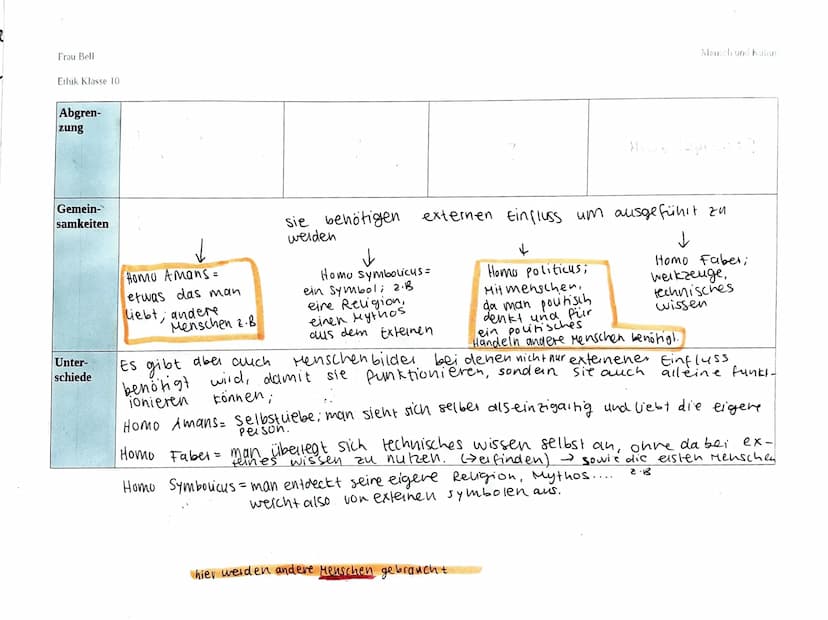 Frau Bell
Mensch und Natur
Ethik Klasse 10
Abgren-
zung
Gemein-
samkeiten
sie benötigen externen Einfluss um ausgeführt zu
werden
Homo Amans =
etwas das man
liebt; andere
Menschen z.B
Homo Symbolicus =
ein Symbol; z.B
eine Religion,
einen Mythos
aus dem Externen
Homo politicus;
Mitmenschen,
da man politisch
denkt und für
ein politisches
Handeln andere Menschen benötigt.
Homo Faber;
werkzeuge,
technisches
wissen
Unter-
schiede
Es gibt aber auch Menschenbilder bei denen nicht nur externener Einfluss
benötigt wird, damit sie funktionieren, sondern sie auch alleine funkt-
ionieren können;
Homo Amans = Selbstliebe; man sieht sich selber als einzigartig und liebt die eigene
Person.
Homo Faber = man überlegt sich technisches wissen selbst an, ohne dabei ex-
wissen zu nutzen. (→ erfinden) → sowie die ersten Menschen
z.B
Homo Symbolicus = man entdeckt seine eigene Religion, Mythos....
weicht also von externen symbolen aus.
hier werden andere Menschen gebraucht